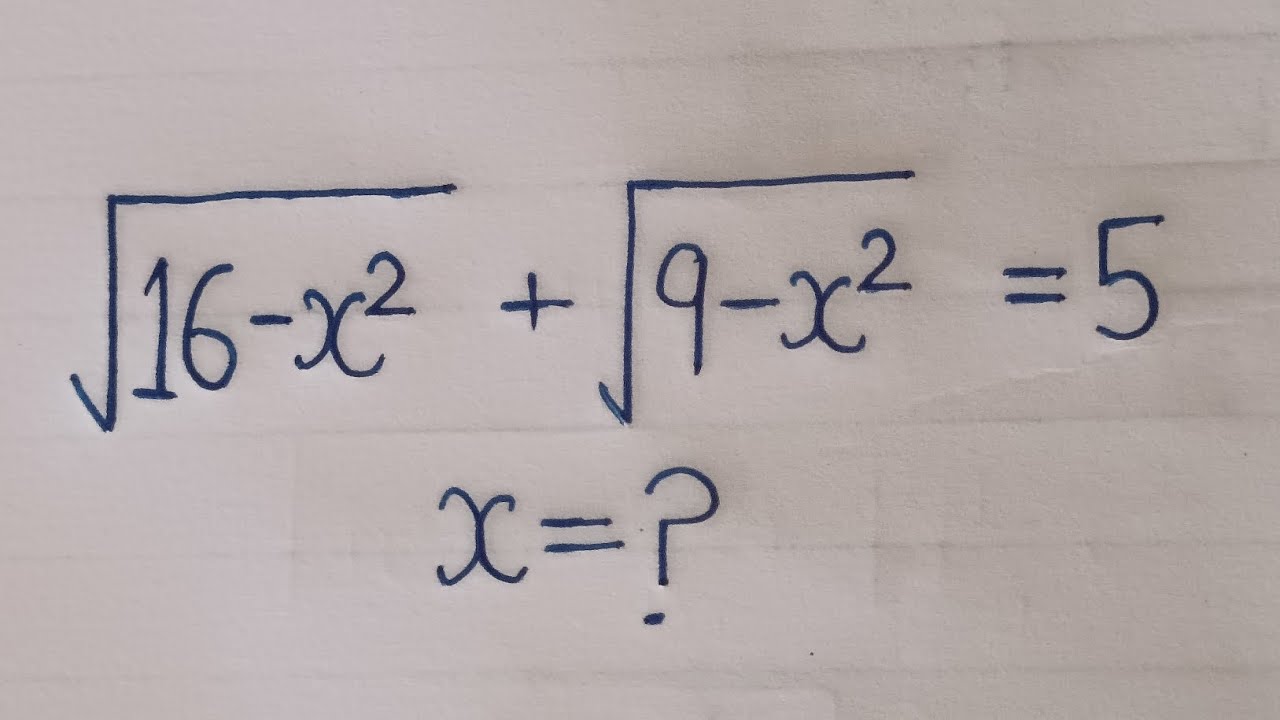 √16-x² + √9-x² = 5
x=?